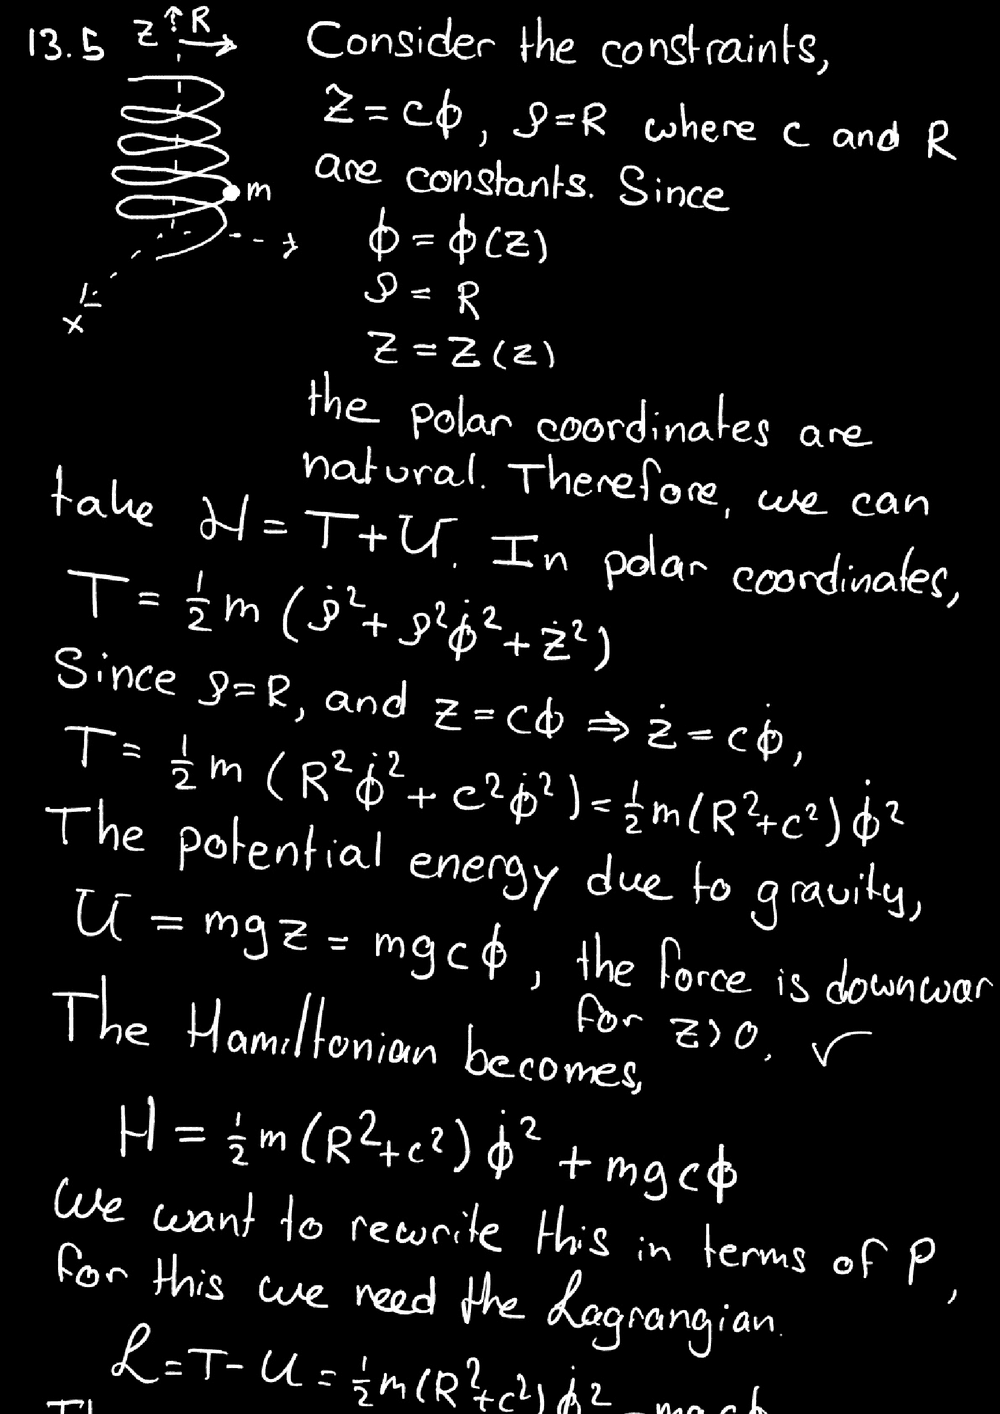 13.5 Z R Consider the constraints,
z = cϕ, ρ=R where c and R
are constants. Since
m
ϕ = ϕ(z)
ρ = R
x
z = z(z)
the polar coordinates are
natural. Therefore, we can
take ℋ = T+U. In polar coordinates,
T = ½ m (ρ̇² + ρ²ϕ̇² + ż²)
Since ρ=R, and z = cϕ ⇒ ż = cϕ̇,
T = ½ m (R²ϕ̇² + c²ϕ̇²) = ½ m(R²+c²) ϕ̇²
The potential energy due to gravity,
U = mgz = mgcϕ, the force is downwar
for z>0. ✓
The Hamiltonian becomes,
H = ½ m (R²+c²) ϕ̇² + mgcϕ
We want to rewrite this in terms of P,
for this we need the Lagrangian.
ℒ = T - U = ½ m(R²+c²) ϕ̇² - mgcϕ